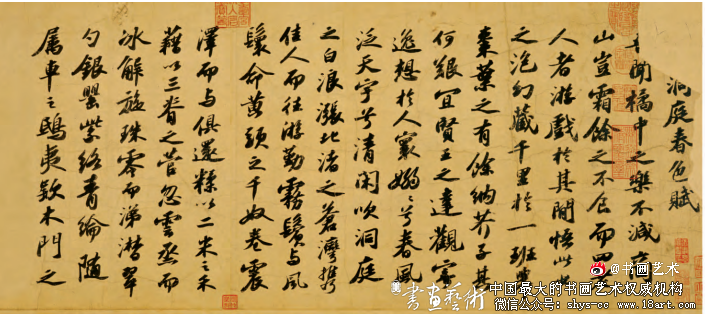 洞庭春色賦
聞橘中之樂不減商
山豈霜餘之不食而四
人者游戲於其間悟此世
之泡幻藏千里於一班舉
棗葉之有餘納芥子其
何艱宜賢王之達觀寄
逸想於人寰嫋〻兮春風
泛天宇兮清閑吹洞庭
之白浪漲北渚之蒼灣攜
佳人而往游勤霧鬢與風
鬟命黃頭之千奴卷震
澤而与俱還糅以二米之禾
藉以三脊之菅忽雲烝而
冰解旋珠零而涕潸翠
勺銀罌紫絡青綸隨
属車之鴟夷款木門之
@书画艺术
書畫藝術
中国最大的书画艺术权威机构
微信公众号：shys-cc www.18art.com